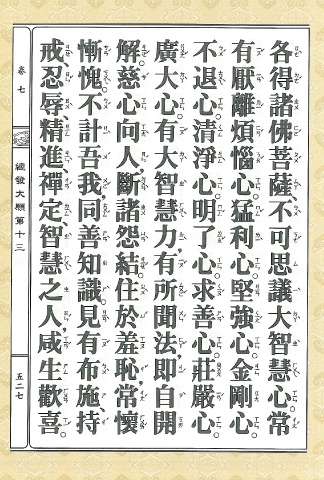 各得諸佛菩薩、不可思議大智慧心。常
有厭離煩惱心。猛利心。堅強心。金剛心。
不退心。清淨心。明了心。求善心。莊嚴心。
廣大心。有大智慧力、有所聞法、即自開
解。慈心向人、斷諸怨結。住於羞恥、常懷
慚愧。不計吾我、同善知識。見有布施、持
戒、忍辱、精進、禪定、智慧之人、咸生歡喜。
卷七
續發大願第十三
五二七